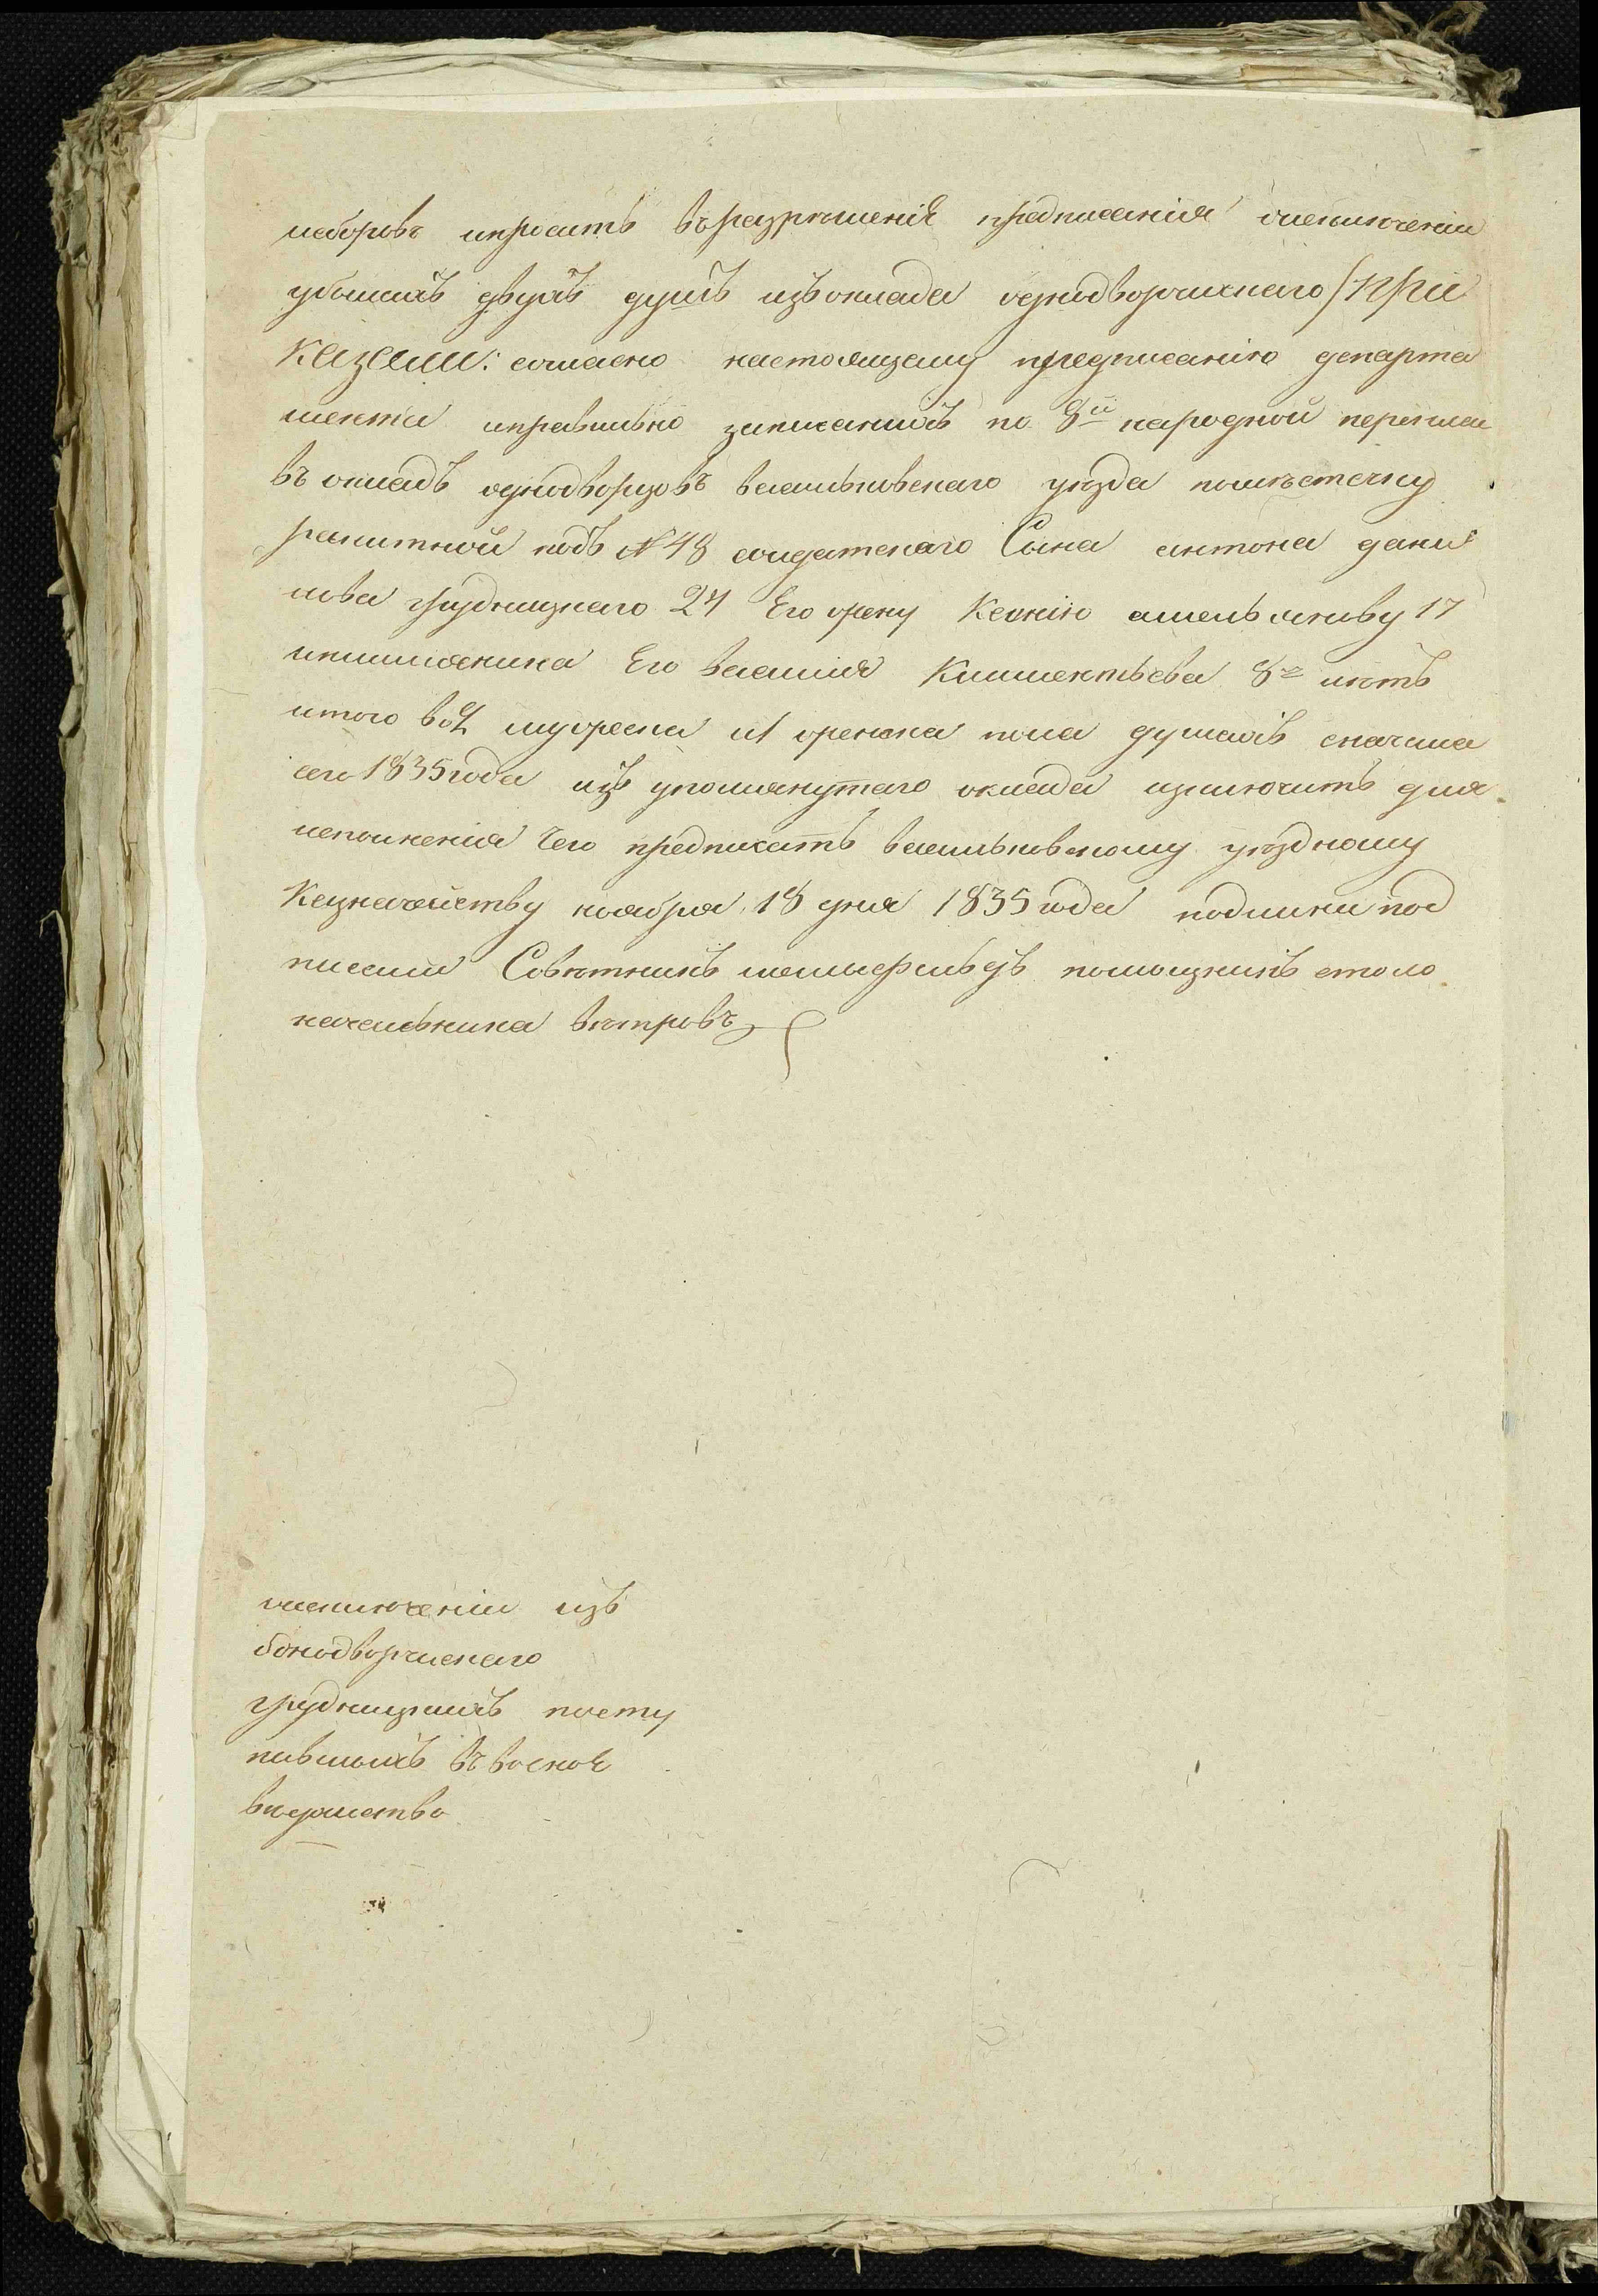 зборовъ ипросить въразрѣшенія предписанія оисключеніи
убылыхъ двухъ душъ изъоклада однодворческаго /При
казали: согласно настоящему предписанію департа
мента иправильно записанныхъ по 8й народной переписи
въ окладъ однодворцовъ васильковскаго уѣзда помѣстечку
ракитной подъ №48 солдатскаго Сына антона дани
лова грудницкаго 24 Его жену Ксенію 17
иплимянника Его василия Климентьева 8 лѣтъ
итого в 2 мужеска и1 женска пола душахъ сначала
сего 1835года изъ упомянутаго оклада изключить для
исполненія Чего предписать васильковскому уѣздному
Казначейству ноября 18 дня 1835 года подлинной под
писали Совѣтникъ помощникъ столо
начальника вѣтровъ
оисключеніи изъ
однодворческаго
грудницкихъ посту
пившихъ въ военое
вѣдомство